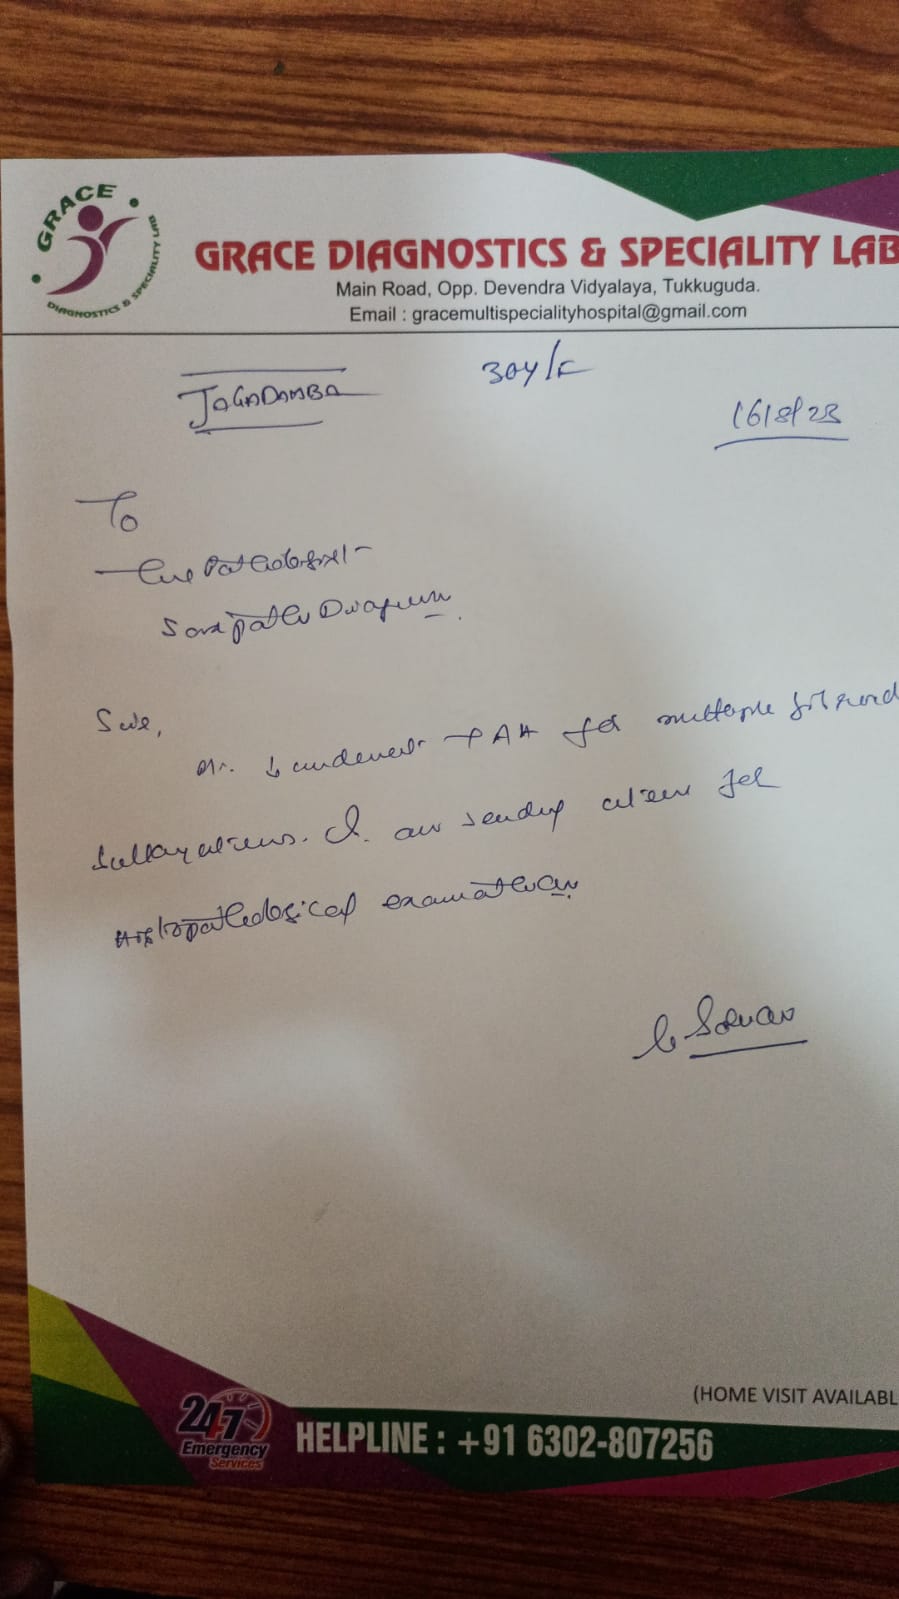 GRACE
DIAGNOSTICS & SPECIALITY LAB
GRACE DIAGNOSTICS & SPECIALITY LAB
Main Road, Opp. Devendra Vidyalaya, Tukkuguda.
Email : gracemultispecialityhospital@gmail.com
JAGADAMBA 30Y/F
16/8/23
To
The Pathologist
Sir,
TAH for multiple fibroid
I am sending uterus for
histopathological
(HOME VISIT AVAILABL
24/7
Emergency
Services
HELPLINE : +91 6302-807256